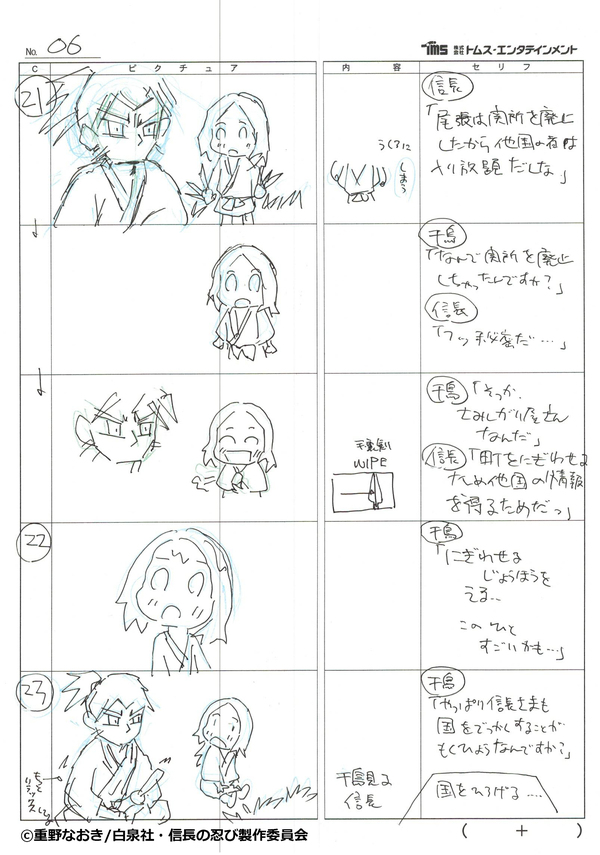 No. 06
TMS 株式会社 トムス・エンタテインメント
C ピクチュア 内容 セリフ
21
うしろに
しまう
信長
「尾張は関所を廃止
したから他国の者は
入り放題だしな」
千鳥
「なんで関所を廃止
しちゃったんですか?」
信長
「フッ 秘密だ…」
千鳥
WIPE
千鳥 「そっか、
さみしがり屋さん
なんだ」
信長 「町をにぎわせる
ため他国の情報
を得るためだっ」
22
千鳥
「にぎわせる
じょうほうを
える…
この ひと
すごいかも…」
23
もっと
リラックス
千鳥見る
信長
千鳥
「やっぱり信長さまも
国をでっかくすることが
もくひょうなんですか?」
国をひろげる….
( + )
©重野なおき/白泉社・信長の忍び製作委員会